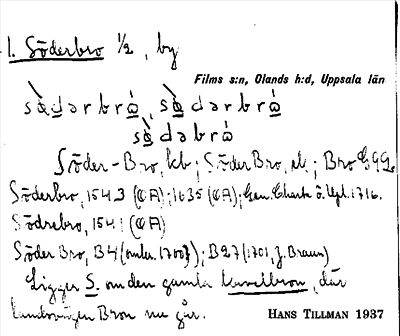 1. Söderbro 1/2, by
Films s:n, Olands h:d, Uppsala län
sö̀dərbrὼ, sö̀dərbrὼ
sö̀dəbrὼ
Söder-Bro, kb; Söder Bro, sl.; Bro GGG.
Söderbro, 1543 (CA); 1635 (CA); Gen. Chart. ö. Upl. 1716.
Södrebro, 1541 (CA)
Söder Bro, B4 (omkr. 1700?); B27 (1701, J. Braun)
Ligger S. om den gamla kavelbron, där
landsvägen Bron nu går. HANS TILLMAN 1937